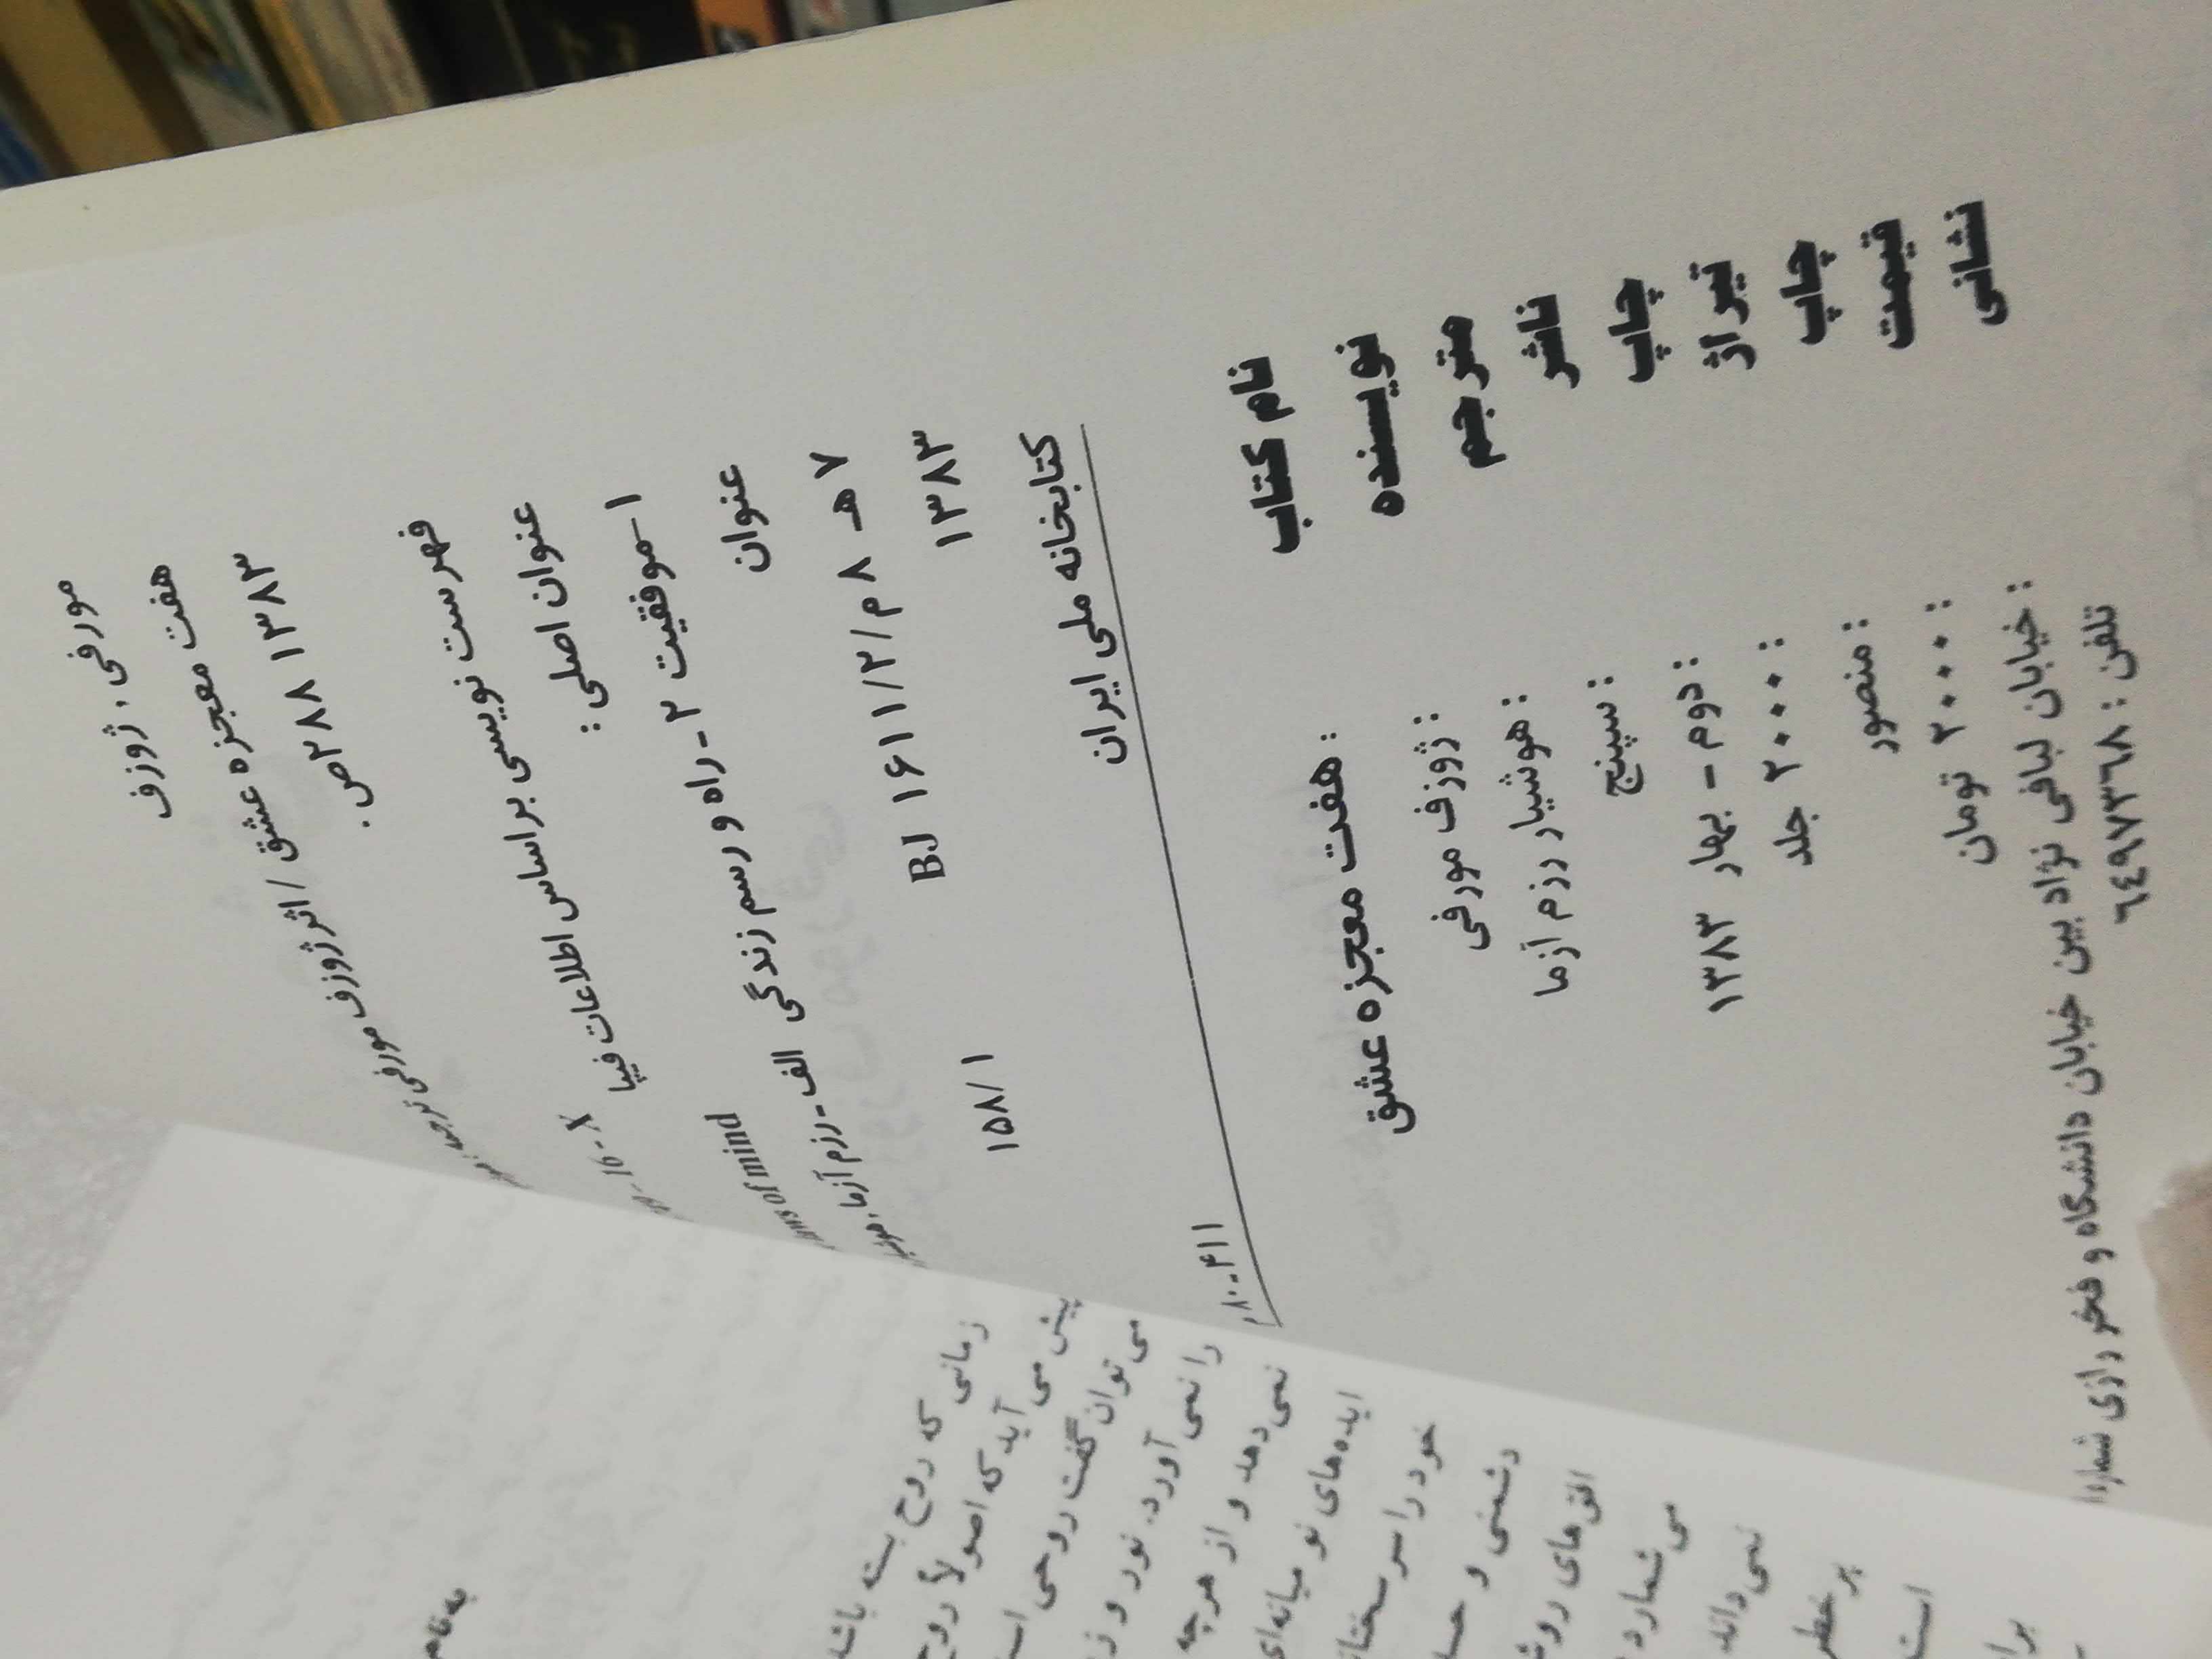 مورفی، ژوزف
هفت معجزه عشق / اثر ژوزف مورفی ترجمه
۱۳۸۳ ۲۸۸ص.
16 - X
فهرست نویسی براساس اطلاعات فیپا
عنوان اصلی : of mind
۱-موفقیت ۲-راه و رسم زندگی الف-رزم آزما،
عنوان
۷هـ ۸م/۲/۱۶۱۱ BJ ۱۵۸/۱
۱۳۸۳
کتابخانه ملی ایران ۸۰-۴۱۱
نام کتاب : هفت معجزه عشق
نویسنده : ژوزف مورفی
مترجم : هوشیار رزم آزما
ناشر : سپنج
چاپ : دوم - بهار ۱۳۸۳
تیراژ : ۲۰۰۰ جلد
چاپ : منصور
قیمت : ۲۰۰۰ تومان
نشانی : خیابان لبافی نژاد بین خیابان دانشگاه و فخر رازی شماره
تلفن : ٦٤٩٧٣٦٨
زمانی که روح بسته باشد
پیش می آید که اصولاً روح
می توان گفت روحی
را نمی آورد. نور و
نمی دهد و از هرچه
ایده های نو میانه ای
خود را سر سختا
دشمنی و حسا
افق های روش
می شمارد
نمی داند
پر خطر
است
برا